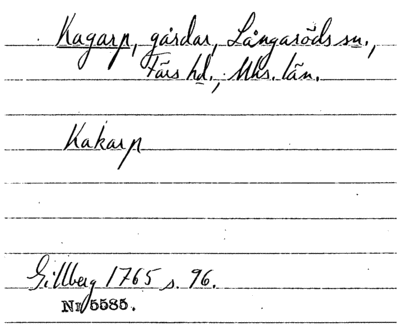 Kagarp, gårdar, Långaröds sn.,
Färs hd., Mhs. län.
Kakarp
Gillberg 1765 s. 96.
NI 5585.